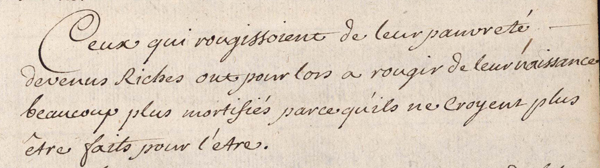 Ceux qui rougissoient de leur pauvreté
devenus Riches ont pour lors a rougir de leur naissance
beaucoup plus mortifiés parce qu'ils ne Croyent plus
être faits pour l'etre.